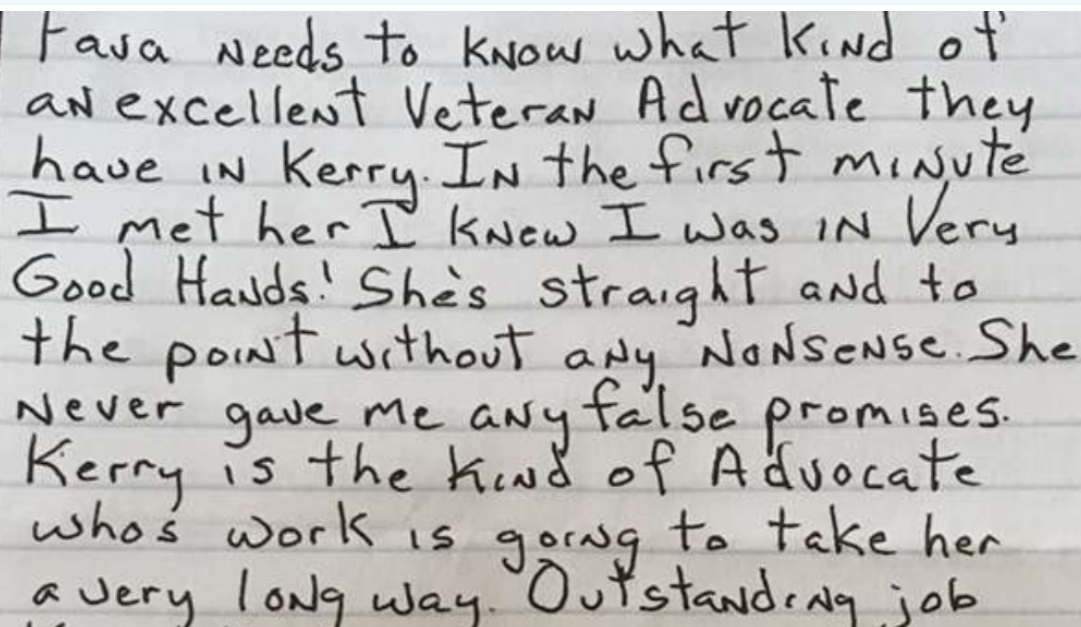 needs to know what kind of
an excellent Veteran Advocate they
have in Kerry. In the first minute
I met her I knew I was in Very
Good Hands! She's straight and to
the point without any nonsense. She
never gave me any false promises.
Kerry is the kind of Advocate
who's work is going to take her
a very long way. Outstanding job